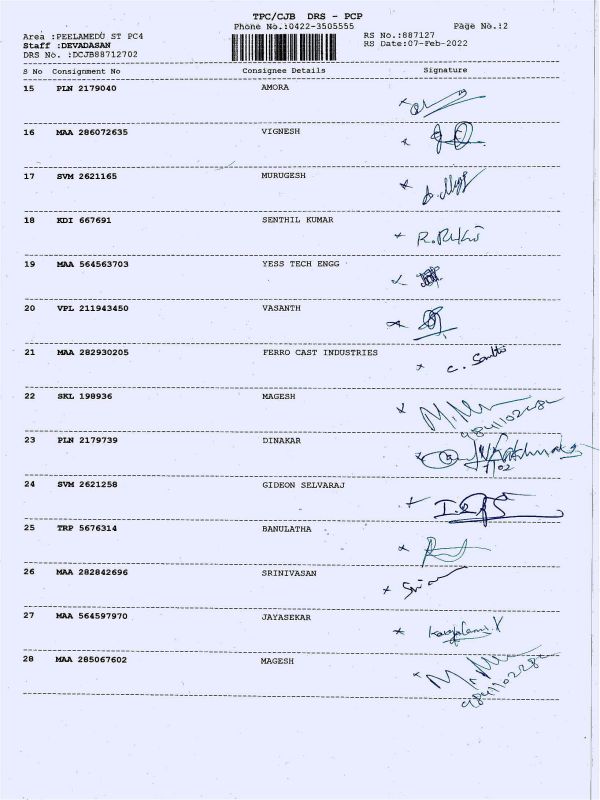 TPC/CJB DRS - PCP
Phone No.:0422-3505555 Page No.:2
Area :PEELAMEDU ST PC4
Staff :DEVADASAN
DRS No. :DCJB88712702
RS No.:887127
RS Date:07-Feb-2022
S No Consignment No Consignee Details Signature
15 PLN 2179040 AMORA
16 MAA 286072635 VIGNESH
17 SVM 2621165 MURUGESH
18 KDI 667691 SENTHIL KUMAR
19 MAA 564563703 YESS TECH ENGG
20 VPL 211943450 VASANTH
21 MAA 282930205 FERRO CAST INDUSTRIES
22 SKL 198936 MAGESH
23 PLN 2179739 DINAKAR
24 SVM 2621258 GIDEON SELVARAJ
25 TRP 5676314 BANULATHA
26 MAA 282842696 SRINIVASAN
27 MAA 564597970 JAYASEKAR
28 MAA 285067602 MAGESH